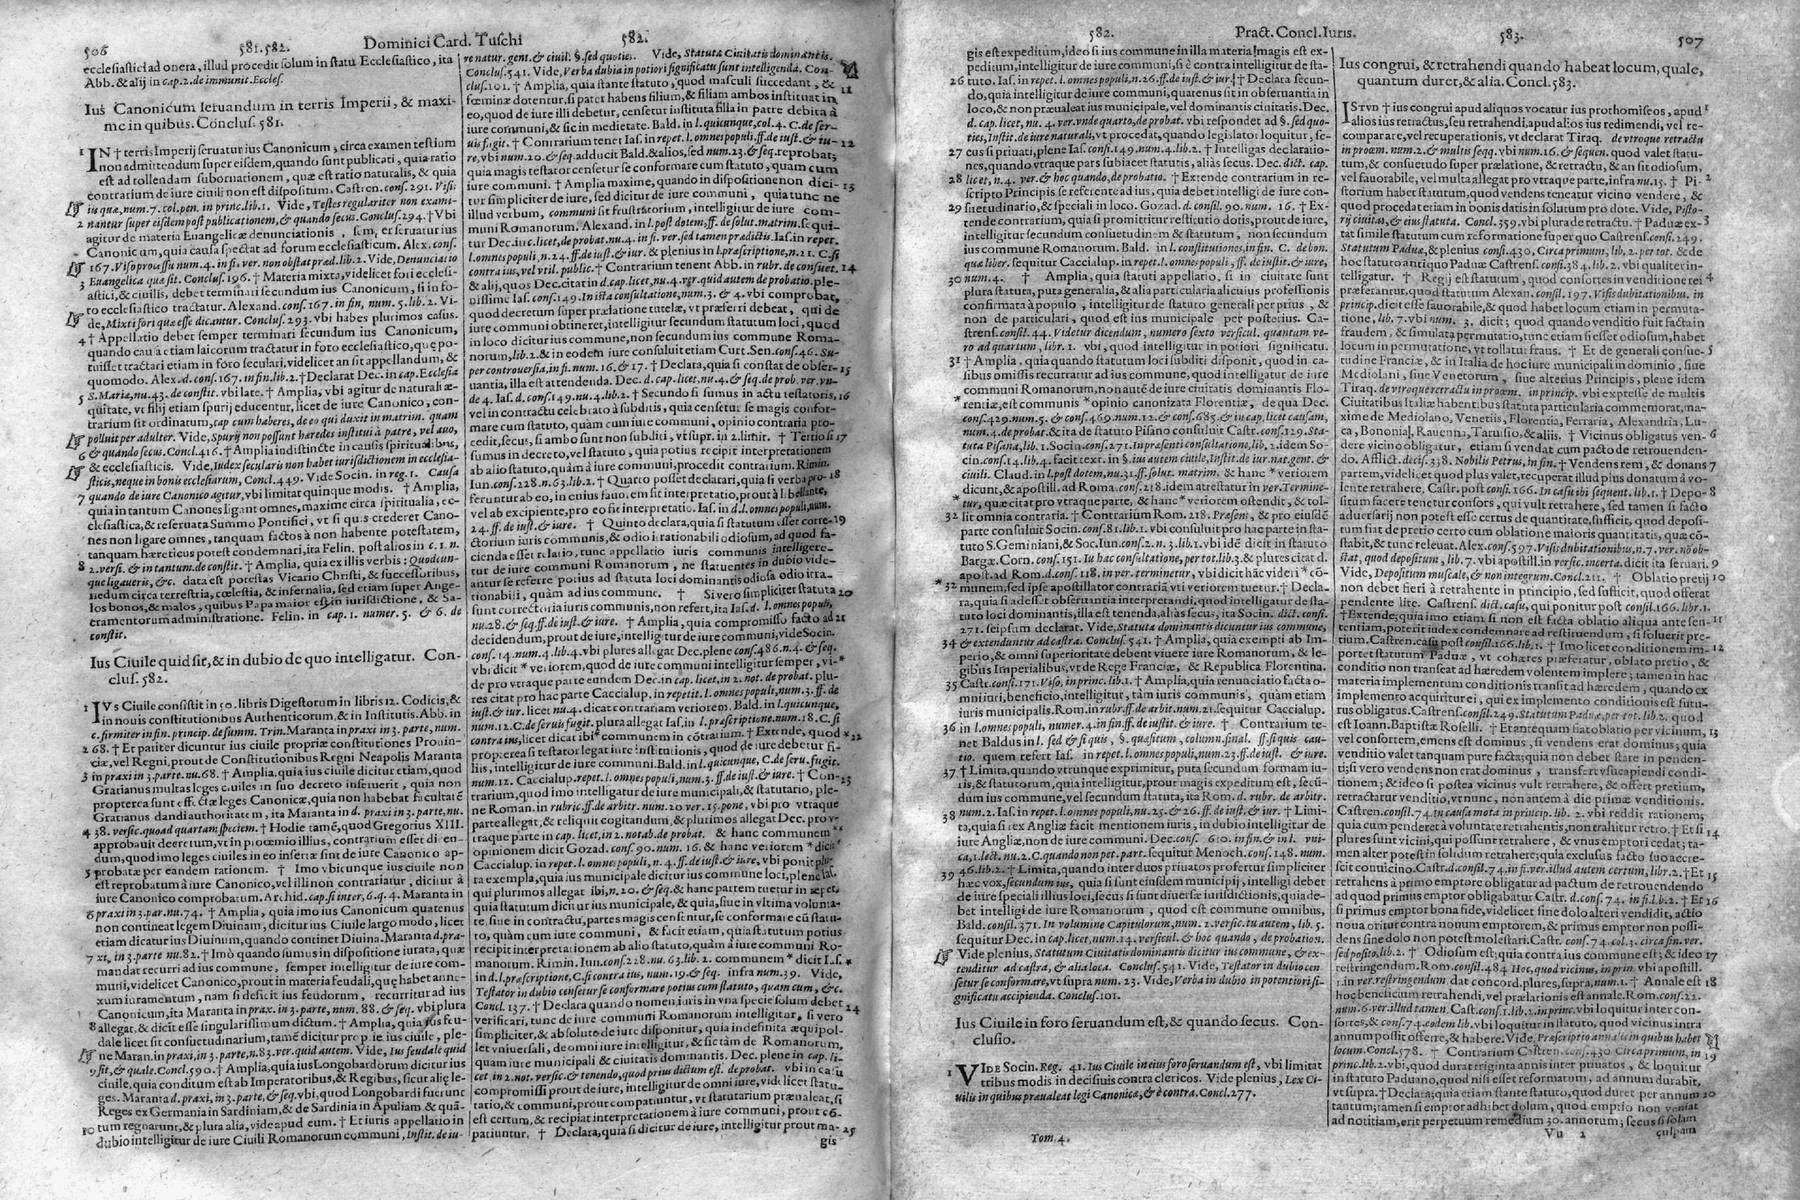 506 581.582. Dominici Card. Tuschi 582.
ecclesiastici ad onera, illud procedit solum in statu Ecclesiastico, ita
Abb. & alij in cap.2. de immunit. Eccles.
Ius Canonicum seruandum in terris Imperij, & maxi-
me in quibus. Conclus. 581.
1 IN † terris Imperij seruatur ius Canonicum, circa examen testium
non admittendum super eisdem, quando sunt publicati, quia ratio
est ad tollendam subornationem, quæ est ratio naturalis, & quia
contrarium de iure ciuili non est dispositum. Castren. cons. 291. Visis
ijs quæ, num. 7. col. pen. in princ. lib. 1. Vide, Testes regulariter non exami-
2 nantur super eisdem post publicationem, & quando secus. Conclus. 294. † Vbi
agitur de materia Euangelicæ denunciationis, semper seruatur ius
Canonicum, quia causa spectat ad forum ecclesiasticum. Alex. cons.
167. Viso processu num. 4. in fi. ver. non obstat præd. lib. 2. Vide, Denunciatio
3 Euangelica quæ sit. Conclus. 196. † Materia mixta, videlicet fori ecclesi-
astici, & ciuilis, debet terminari secundum ius Canonicum, si in fo-
ro ecclesiastico tractatur. Alexand. cons. 167. in fin. num. 5. lib. 2. Vi-
de, Mixti fori quæ esse dicantur. Conclus. 293. vbi habes plurimos casus.
4 † Appellatio debet semper terminari secundum ius Canonicum,
quando causa etiam laicorum tractatur in foro ecclesiastico, quæ po-
tuisset tractari etiam in foro laicali, videlicet an sit appellandum, &
quomodo. Alex. d. cons. 167. in fin. lib. 2. † Declarat Dec. in cap. Ecclesia
5 S. Mariæ, nu. 43. de constit. vbi late. † Amplia, vbi agitur de naturali æ-
quitate, vt filij etiam spurij educentur, licet de iure Canonico, con-
trarium sit ordinatum, cap cum haberes, de eo qui duxit in matrim. quam
polluit per adulter. Vide, Spurij non possunt haredes institui à patre, vel auo,
6 & quando secus. Concl. 416. † Amplia indistincte in causis spiritualibus,
& ecclesiasticis. Vide, Iudex secularis non habet iurisdictionem in ecclesia-
sticis, neque in bonis ecclesiarum, Concl. 449. Vide Socin. in reg. 1. Causa
7 quando de iure Canonico agitur, vbi limitat quinque modis. † Amplia,
quia in tantum Canones ligant omnes, maxime circa spiritualia, ec-
clesiastica, & reseruata Summo Pontifici, vt si quis crederet Cano-
nes non ligare omnes, tanquam factos à non habente potestatem,
tanquam hæreticus potest condemnari, ita Felin. post alios in c. 1. n.
8 2. versi. & in tantum. de constit. † Amplia, quia ex illis verbis: Quodcun-
que ligaueris, &c. data est potestas Vicario Christi, & successoribus,
nedum circa terrestria, cœlestia, & infernalia, sed etiam super Ange-
los bonos, & malos, quibus Papa maior est in iurisdictione, & Sa-
cramentorum administratione. Felin. in cap. 1. numer. 5. & 6. de
constit.
Ius Ciuile quid sit, & in dubio de quo intelligatur. Con-
clus. 582.
1 IVS Ciuile consistit in 50. libris Digestorum in libris 12. Codicis, &
in nouis constitutionibus Authenticorum, & in Institutis. Abb. in
c. firmiter in fin. princip. de summ. Trin. Maranta in praxi in 3. parte, num.
2 68. † Et pariter dicuntur ius ciuile propriæ constitutiones Prouin-
ciæ, vel Regni, prout de Constitutionibus Regni Neapolis Maranta
3 in praxi in 3. parte. nu. 68. † Amplia, quia ius ciuile dicitur etiam, quod
Gratianus multas leges ciuiles in suo decreto inseruerit, quia non
propterea sunt effectæ leges Canonicæ, quia non habebat facultatẽ
Gratianus dandi authoritatem, ita Maranta in d. praxi in 3. parte, nu.
4 38. versic. quoad quartam speciem. † Hodie tamẽ, quod Gregorius XIII.
approbauit decretum, vt in prooemio illius, contrarium esset dicen-
dum, quod imo leges ciuiles in eo insertæ sint de iure Canonico ap-
5 probatæ per eandem rationem. † Imo vbicunque ius ciuile non
est reprobatum à iure Canonico, vel illi non contrariatur, dicitur à
iure Canonico comprobatum. Archid. cap. si inter, 6. q. 4. Maranta in
6 praxi in 3. par. nu. 74. † Amplia, quia imo ius Canonicum quatenus
non contineat legem Diuinam, dicitur ius Ciuile largo modo, licet
etiam dicatur ius Diuinum, quando continet Diuina. Maranta d. pra-
7 xi, in 3. parte nu. 82. † Imò quando sumus in dispositione iurata, quæ
mandat recurri ad ius commune, semper intelligitur de iure com-
muni, videlicet Canonico, prout in materia feudali, quæ habet anne-
xum iuramentum, nam si deficit ius feudorum, recurritur ad ius
Canonicum, ita Maranta in prax. in 3. parte, num. 88. & seq. vbi plura
8 allegat, & dicit esse singularissimum dictum. † Amplia, quia ius feu-
dale licet sit consuetudinarium, tamẽ dicitur proprie ius ciuile, ple-
ne Maran. in praxi, in 3. parte, n. 83. ver. quid autem. Vide, Ius feudale quid
9 sit, & quale. Concl. 590. † Amplia, quia ius Longobardorum dicitur ius
ciuile, quia conditum est ab Imperatoribus, & Regibus, sicut aliæ le-
ges. Maranta d. praxi, in 3. parte, & seq. vbi, quod Longobardi fuerunt
Reges ex Germania in Sardiniam, & de Sardinia in Apuliam & quã-
10 tum regnarunt, & plura alia, vide apud eum. † Et iuris appellatio in
dubio intelligitur de iure Ciuili Romanorum communi, Instit. de iu-
re natur. gent. & ciuil. §. sed quoties. Vide, Statuta Ciuitatis dominantis.
Conclus. 541. Vide, Verba dubia in potiori significatu sunt intelligenda. Con-
clus. 101. † Amplia, quia stante statuto, quod masculi succedant, & 11
fœminæ dotentur, si pater habens filium, & filiam ambos instituat in
eo, quod de iure illi debetur, censetur instituta filia in parte debita à
iure communi, & sic in medietate. Bald. in l. quicunque, col. 4. C. de ser-
uis fugit. † Contrarium tenet Ias. in repet. l. omnes populi, ff. de iust. & iu- 12
re, vbi num. 20. & seq. adducit Bald. & alios, sed num. 23. & seq. reprobat;
quia magis testator censetur se conformare cum statuto, quam cum
iure communi. † Amplia maxime, quando in dispositione non dici- 13
tur simpliciter de iure, sed dicitur de iure communi, quia tunc ne
illud verbum, communi sit frustratorium, intelligitur de iure com-
muni Romanorum, Alexand. in l. post dotem, ff. de solut. matrim. sequi-
tur Dec. in c. licet, de probat. nu. 4. in fi. ver. sed tamen prædictis. Ias. in repet.
l. omnes populi, n. 24. ff. de iust. & iur. & plenius in l. præscriptione, n. 21. C. si
contra ius, vel vtil. public. † Contrarium tenent Abb. in rubr. de consuet. 14
& alij, quos Dec. citat in d. cap. licet, nu. 4. ver. quid autem de probatio. ple-
nissime Ias. cons. 149. In ista consultatione, num. 3. & 4. vbi comprobat,
quod decretum super prælatione tutelæ, vt præferri debeat, qui de
iure communi obtineret, intelligitur secundum statutum loci, quod
in loco dicitur ius commune, non secundum ius commune Roma-
norum, lib. 2. & in eodem iure consuluit etiam Curt. Sen. cons. 46. Su-
per controuersia, in fi. num. 16. & 17. † Declara, quia si constat de obser- 15
uantia, illa est attendenda. Dec. d. cap. licet, nu. 4. & seq. de prob. ver. vn-
de 4. Ias. d. cons. 149. nu. 4. lib. 2. † Secundo si sumus in actu testatoris, 16
vel in contractu celebrato à subditis, quia censetur se magis confor-
mare cum statuto, quam cum iure communi, opinio contraria pro-
cedit, secus, si ambo sunt non subditi, vt supr. in 2. limit. † Tertio si 17
sumus in decreto, vel statuto, quia potius recipit interpretationem
ab alio statuto, quàm à iure communi, procedit contrarium. Rimin.
Iun. cons. 228. n. 63. lib. 2. † Quarto posset declarari, quia si verba pro- 18
feruntur ab eo, in cuius fauorem sit interpretatio, prout à libellante,
vel ab excipiente, pro eo fit interpretatio. Ias. in d. l. omnes populi, num.
24. ff. de iust. & iure. † Quinto declara, quia si statutum esset corre- 19
ctorium iuris communis, & odio irrationabili odiosum, ad quod fa-
cienda esset relatio, tunc appellatio iuris communis intelligere-
tur de iure communi Romanorum, ne statuentes in dubio vide-
antur se referre potius ad statuta loci dominantis odiosa odio irra-
tionabili, quàm ad ius commune. † Si vero simpliciter statuta 20
sunt correctoria iuris communis, non refert, ita Ias. d. l. omnes populi,
nu. 28. & seq. ff. de iust. & iure. † Amplia, quia compromisso facto ad 21
decidendum, prout de iure, intelligitur de iure communi, vide Socin.
cons. 14. num. 4. lib. 4. vbi plures allegat Dec. plene cons. 486. n. 4. & seq.
vbi dicit * veriorem, quod de iure communi intelligitur semper, vi- *
de pro vtraque parte eundem Dec. in cap. licet, in 2. not. de probat. plu-
res citat pro hac parte Caccialup. in repetit. l. omnes populi, num. 3. ff. de
iust. & iur. licet nu. 4. dicat contrariam veriorem. Bald. in l. quicunque,
num. 12. C. de seruis fugit. plura allegat Ias. in l. præscriptione, num. 18. C. si
contra ius, licet dicat ibi * communem in cõtrarium. † Extende, quod * 22
propterea si testator legat iure institutionis, quod de iure debetur fi-
liis, intelligitur de iure communi. Bald. in l. quicunque, C. de seru. fugit.
num. 12. Caccialup. repet. l. omnes populi, num. 3. ff. de iust. & iure. † Con- 23
trarium, quod imo intelligitur de iure municipali, & statutario, ple-
ne Roman. in rubric. ff. de arbitr. num. 20. ver. 15. pone, vbi pro vtraque
parte allegat, & reliquit cogitandum, & plurimos allegat Dec. pro v-
traque parte in cap. licet, in 2. notab. de probat. & hanc communem *
opinionem dicit Gozad. cons. 90. num. 16. & hanc veriorem * dicit *
Caccialup. in repet. l. omnes populi, n. 4. ff. de iust. & iure, vbi ponit plu-
ra exempla, quia ius municipale dicitur ius commune loci, plene Ias.
qui plurimos allegat ibi, n. 20. & seq. & hanc partem tuetur in repet.
quia statutum dicitur ius municipale, & quia, siue in vltima volunta-
te, siue in contractu, partes magis censentur, se conformare cũ statu-
to, quàm cum iure communi, & facit etiam, quia statutum potius
recipit interpretationem ab alio statuto, quàm à iure communi Ro-
manorum. Rimin. Iun. cons. 228. nu. 63. lib. 2. communem * dicit Ias. *
in d. l. præscriptione, C. si contra ius, num. 19. & seq. infra num. 39. Vide,
Testator in dubio censetur se conformare potius cum statuto, quam cum, &c.
Concl. 137. † Declara quando nomen iuris in vna specie solum debet 24
verificari, tunc de iure communi Romanorum intelligitur, si vero
simpliciter, & absolute de iure disponitur, quia indefinita æquipol-
let vniuersali, de omni iure intelligitur, & sic tàm de Romanorum,
quam iure municipali & ciuitatis dominantis. Dec. plene in cap. li-
cet, in 2. not. versic. & tenendo, quod prius dictum est. de probat. vbi in casu
compromissi prout de iure, intelligitur de omni iure, videlicet statu-
tario, & communi, prout compatiuntur, vt statutarium præualeat, si
est certum, & recipiat interpretationem à iure communi, prout cõ-
patiuntur. † Declara, quia si dicitur de iure, intelligitur prout ma- 25
gis
582. Pract. Concl. Iuris. 583. 507
gis est expeditum, ideo si ius commune in illa materia magis est ex-
pedium, intelligitur de iure communi, si è contra intelligitur de sta-
26 tuto. Ias. in repet. l. omnes populi, n. 26. ff. de iust. & iur. † Declara secun-
do, quia intelligitur de iure communi, quatenus sit in obseruantia in
loco, & non præualeat ius municipale, vel dominantis ciuitatis. Dec.
d. cap. licet, nu. 4. ver. vnde quarto, de probat. vbi respondet ad §. sed quo-
ties, Instit. de iure naturali, vt procedat, quando legislator loquitur, se-
27 cus si priuati, plene Ias. cons. 149. num. 4. lib. 2. † Intelligas declaratio-
nes, quando vtraque pars subiacet statutis, aliàs secus. Dec. dict. cap.
28 licet, n. 4. ver. & hoc quando, de probatio. † Extende contrarium in re-
scripto Principis, se referente ad ius, quia debet intelligi de iure con-
29 suetudinario, & speciali in loco. Gozad. d. cons. 90. num. 16. † Ex-
tende contrarium, quia si promittitur restitutio dotis, prout de iure,
intelligitur secundum consuetudinem & statutum, non secundum
ius commune Romanorum. Bald. in l. constitutiones, in fin. C. de bon.
quæ liber. sequitur Caccialup. in repet. l. omnes populi, ff. de iust. & iure,
30 num. 4. † Amplia, quia statuti appellatio, si in ciuitate sunt
plura statuta, puta generalia, & alia particularia alicuius professionis
confirmata à populo, intelligitur de statuto generali per prius, &
non de particulari, quod est ius municipale per posterius. Ca-
strens. consil. 44. Videtur dicendum, numero sexto versicul. quantum ve-
ro ad quartum, libr. 1. vbi, quod intelligitur in potiori significatu.
31 † Amplia, quia quando statutum loci subditi disponit, quod in ca-
sibus omissis recurratur ad ius commune, quod intelligitur de iure
communi Romanorum, non autẽ de iure ciuitatis dominantis Flo-
* rentiæ, est communis * opinio canonizata Florentiæ, de qua Dec.
cons. 429. num. 5. & cons. 469. num. 12. & cons. 685. & in cap. licet causam,
num. 4. de probat. & ita de statuto Pisano consuluit Castr. cons. 129. Sta-
tuta Pisana, lib. 1. Socin. cons. 271. In præsenti consultatione, lib. 2. idem So-
cin. cons. 14. lib. 4. facit text. in §. ius autem ciuile, Instit. de iur. nat. gent. &
ciuili. Claud. in l. post dotem, nu. 31. ff. solut. matrim. & hanc * veriorem
dicunt, & apostill. ad Roma. cons. 218. idem atrestatur in ver. Termine-
* tur, quæ citat pro vtraque parte, & hanc * veriorem ostendit, & tol-
32 lit omnia contraria. † Contrarium Rom. 218. Præsens, & pro eiusdẽ
parte consuluit Socin. cons. 81. lib. 1. vbi consuluit pro hac parte in sta-
tuto S. Geminiani, & Soc. Iun. cons. 2. n. 3. lib. 1. vbi idẽ dicit in statuto
Bargæ. Corn. cons. 151. In hac consultatione, per tot. lib. 3. & plures citat d.
apost. ad Rom. d. cons. 118. in ver. terminetur, vbi dicit hãc videri * cõ-
* 32 munem, sed ipse apostillator contrariã vti veriorem tuetur. † Decla-
ra, quia si adesset obseruantia interpretandi, quod intelligitur de sta-
tuto loci dominantis, illa est tenenda, aliàs secus, ita Socin. dict. consi.
271. seipsum declarat. Vide, Statuta dominantis dicuntur ius commune,
34 & extenduntur ad castra. Conclus. 541. † Amplia, quia exempti ab Im-
perio, & omni superioritate debent viuere iure Romanorum, & le-
gibus Imperialibus, vt de Rege Franciæ, & Republica Florentina.
35 Castr. cons. 171. Viso, in princ. lib. 1. † Amplia, quia renunciatio facta o-
mni iuri, beneficio, intelligitur, tàm iuris communis, quàm etiam
iuris municipalis. Rom. in rubr. ff. de arbit. num. 21. sequitur Caccialup.
36 in l. omnes populi, numer. 4. in fin. ff. de iustit. & iure. † Contrarium te-
net Baldus in l. sed & si quis, §. quæsitum, column. final. ff. si quis cau-
tio. quem refert Ias. in repet. l. omnes populi, num. 23. ff. de iust. & iure.
37 † Limita, quando vtrunque exprimitur, puta secundum formam iu-
ris, & statutorum, quia intelligitur, prout magis expeditum est, secũ-
dum ius commune, vel secundum statuta, ita Rom. d. rubr. de arbitr.
38 num. 2. Ias. in repet. l. omnes populi, nu. 25. & 26. ff. de iust. & iur. † Limi-
ta, quia si rex Angliæ facit mentionem iuris, in dubio intelligitur de
iure Angliæ, non de iure communi. Dec. cons. 610. in fin. & in l. vni-
ca, 1. lect. nu. 2. C. quando non pet. part. sequitur Menoch. cons. 148. num.
39 46. lib. 2. † Limita, quando inter duos priuatos profertur simpliciter
hæc vox, secundum ius, quia si sunt eiusdem municipij, intelligi debet
de iure speciali illius loci, secus si sunt diuersæ iurisdictionis, quia de-
bet intelligi de iure Romanorum, quod est commune omnibus,
Bald. consil. 371. In volumine Capitulorum, num. 2. versic. tu autem, lib. 5.
sequitur Dec. in cap. licet, num. 14. versicul. & hoc quando, de probation.
Vide plenius, Statutum Ciuitatis dominantis dicitur ius commune, & ex-
tenditur ad castra, & alia loca. Conclus. 541. Vide, Testator in dubio cen
setur se conformare, vt supra num. 23. Vide, Verba in dubio in potentiori si-
gnificatu accipienda. Conclus. 101.
Ius Ciuile in foro seruandum est, & quando secus. Con-
clusio.
1 VIDE Socin. Reg. 41. Ius Ciuile in eius foro seruandum est, vbi limitat
tribus modis in decisiuis contra clericos. Vide plenius, Lex Ci-
uilis in quibus præualeat legi Canonica, & è contra. Concl. 277.
Tom. 4.
Ius congrui, & retrahendi quando habeat locum, quale,
quantum duret, & alia. Concl. 583.
ISTVD † ius congrui apud aliquos vocatur ius prothomiseos, apud 1
alios ius retractus, seu retrahendi, apud alios ius redimendi, vel re-
comparare, vel recuperationis, vt declarat Tiraq. de vtroque retractu
in proœm. num. 2. & multis seqq. vbi num. 16. & sequen. quod valet statu-
tum, & consuetudo super prælatione, & retractu, & an sit odiosum,
vel fauorabile, vel multa allegat pro vtraque parte, infra nu. 15. † Pi- 2
storium habet statutum, quod vendens teneatur vicino vendere, &
quod procedat etiam in bonis datis in solutum pro dote. Vide, Pisto-
rij ciuitas, & eius statuta. Concl. 359. vbi plura de retractu. † Paduæ ex- 3
tat simile statutum cum reformatione super quo Castrens. cons. 249.
Statutum Paduæ, & plenius cons. 430, Circa primum, lib. 2. per tot. & de
hoc statuto antiquo Paduæ Castrens. consi. 384. lib. 2. vbi qualiter in-
telligatur. † Regij est statutum, quod consortes in venditione rei 4
præferantur, quod statutum Alexan. consil. 197. Visis dubitationibus, in
princip. dicit esse fauorabile, & quod habet locum etiam in permuta-
tione, lib. 7. vbi num. 3. dicit; quod quando venditio fuit facta in
fraudem, & simulata permutatio, tunc etiam si esset odiosum, habet
locum in permutatione, vt tollatur fraus. † Et de generali consue- 5
tudine Franciæ, & in Italia de hoc iure municipali in dominio, siue
Mediolani, siue Venetorum, siue alterius Principis, plene idem
Tiraq. de vtroque retractu in proœm. in princip. vbi expresse de multis
Ciuitatibus Italiæ habentibus statuta particularia commemorat, ma-
xime de Mediolano, Venetiis, Florentia, Ferraria, Alexandria, Lu-
ca, Bononia, Rauenna, Taruisio, & aliis. † Vicinus obligatus ven- 6
dere vicino obligatur, etiam si vendat cum pacto de retrouenden-
do. Afflict. decis. 338. Nobilis Petrus, in fin. † Vendens rem, & donans 7
partem, videlicet quod plus valet, recuperat illud plus donatum à vo-
lente retrahere. Castr. post cons. 166. In casu ibi sequent. lib. 1. † Depo- 8
situm facere tenetur consors, qui vult retrahere, sed tamen si facto
aduersarij non potest esse certus de quantitate, sufficit, quod deposi-
tum fiat de pretio certo cum oblatione maioris quantitatis, quæ cõ-
stabit, & tunc releuat. Alex. cons. 597. Visis dubitationibus, n. 7. ver. nõ ob-
stat, quod depositum, lib. 7. vbi apostill. in versic. incerta. dicit ita seruari. 9
Vide, Depositum muscale, & non integrum. Concl. 211. † Oblatio pretij 10
non debet fieri à retrahente in principio, sed sufficit, quod offerat
pendente lite. Castrens. dict. casu, qui ponitur post consil. 166. libr. 1.
† Extende; quia imo etiam si non est facta oblatio aliqua ante sen- 11
tentiam, poterit iudex condemnare ad restituendum, si soluerit pre-
tium. Castr. casu post cons. 166. lib. 1. † Imo licet conditionem im- 12
portet statutum Paduæ, vt cohæres præferatur, oblato pretio, &
conditio non transeat ad hæredem volentem implere; tamen in hac
materia implementum conditionis transit ad hæredem, quando ex
implemento acquiritur ei, qui ex implemento conditionis est futu-
rus obligatus. Castrens. consil. 249. Statutum Paduæ, per tot. lib. 2. quod
est Ioann. Baptistæ Roselli. † Et antequam fiat oblatio per vicinum, 13
vel consortem, emens est dominus, si vendens erat dominus; quia
venditio valet tanquam pure facta; quia non debet stare in penden-
ti; si vero vendens non erat dominus, transfert vsucapiendi condi-
tionem; & ideo si postea vicinus vult retrahere, & offert pretium,
retractatur venditio, vt nunc, non autem à die primæ venditionis.
Castren. consil. 74. In causa mota in princip. lib. 2. vbi reddit rationem;
quia cum penderet à voluntate retrahentis, non trahitur retro. † Et si 14
plures sunt vicini, qui possunt retrahere, & vnus emptori cedat; ta-
men alter potest in solidum retrahere; quia exclusus facto suo accre-
scit conuicino. Castr. d. consil. 74. in fi. ver. illud autem certum, libr. 2. † Et 15
retrahens à primo emptore obligatur ad pactum de retrouendendo
ad quod primus emptor obligabatur Castr. d. cons. 74. in fi. l. lib. 2. † Et 16
si primus emptor bona fide, videlicet sine dolo alteri vendidit, actio
noua oritur contra nouum emptorem, & primus emptor non possi-
dens sine dolo non potest molestari. Castr. cons. 74. col. 3. circa fin. ver.
sed posito, lib. 2. † Odiosum est; quia contra ius commune est; & ideo 17
restringendum. Rom. consil. 484 Hoc, quod vicinus, in prin. vbi apostill.
1. in ver. restringendum dat concord. plures, supra, num. 1. † Annale est 18
hoc beneficium retrahendi, vel prælationis est annale. Rom. cons. 22.
num. 6. ver. illud tamen. Castren. cons. 1. lib. 2. in princ. vbi loquitur inter con-
sortes, & cons. 74. eodem lib. vbi loquitur in statuto, quod vicinus intra
annum possit offerre, & habere. Vide, Præscriptio annalis in quibus habet
locum. Concl. 578. † Contrarium Castren. cons. 430 Circa primum, in 19
princ. lib. 2. vbi, quod durat triginta annis inter priuatos, & loquitur
in statuto Paduano, quod nisi esset reformatum, ad annum durabit,
vt supra. † Declara; quia etiam stante statuto, quod duret per annum 20
tantum; tamen si emptor adhibet dolum, quod emptio non veniat
ad notitiam, erit perpetuum remedium 30. annorum; secus si solam
Vu 2 culpam